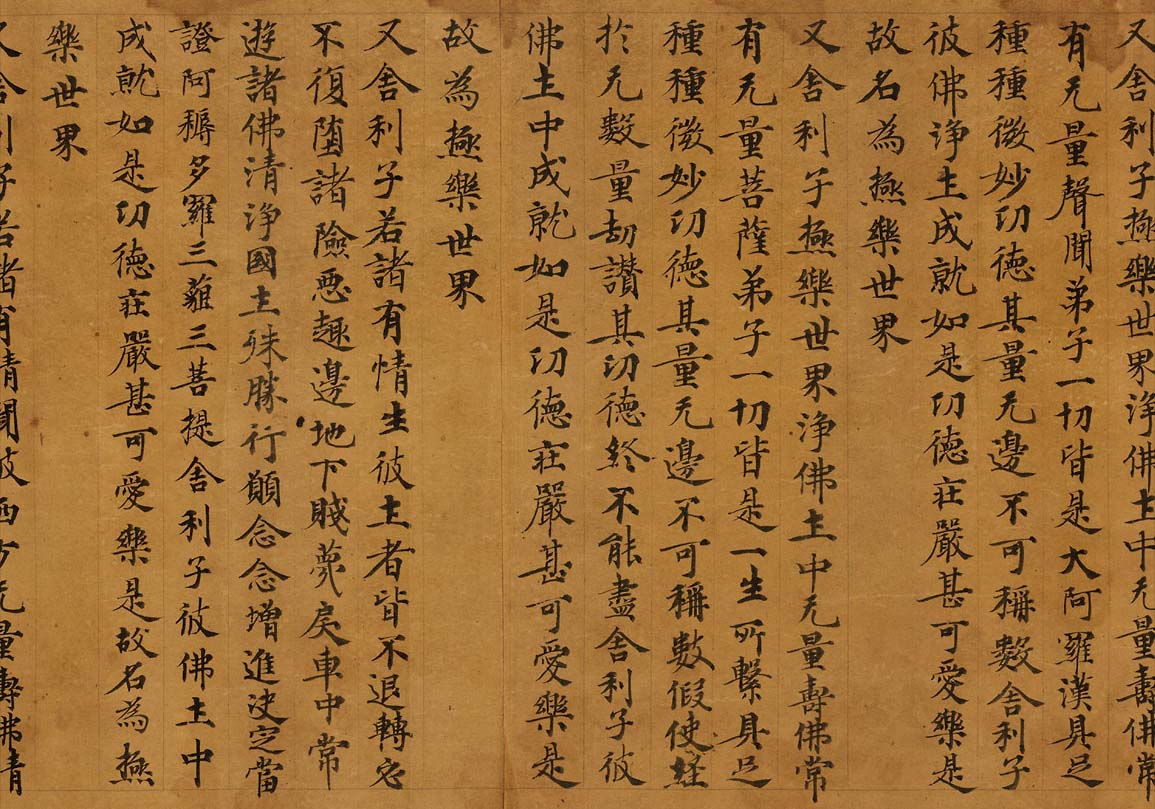 又舍利子極樂世界浄佛土中无量壽佛常
有无量聲聞弟子一切皆是大阿羅漢具足
種種微妙功德其量无邊不可稱數舍利子
彼佛浄土成就如是功德莊嚴甚可愛樂是
故名為極樂世界
又舍利子極樂世界浄佛土中无量壽佛常
有无量菩薩弟子一切皆是一生所繫具足
種種微妙功德其量无邊不可稱數假使經
於无數量劫讃其功德終不能盡舍利子彼
佛土中成就如是功德莊嚴甚可愛樂是
故為極樂世界
又舍利子若諸有情生彼土者皆不退轉必
不復堕諸險惡趣邊地下賤蔑戾車中常
遊諸佛清浄國土殊勝行願念念增進决定當
證阿耨多羅三藐三菩提舍利子彼佛土中
成就如是功德莊嚴甚可愛樂是故名為極
樂世界
又舍利子若諸有情聞彼西方无量壽佛清